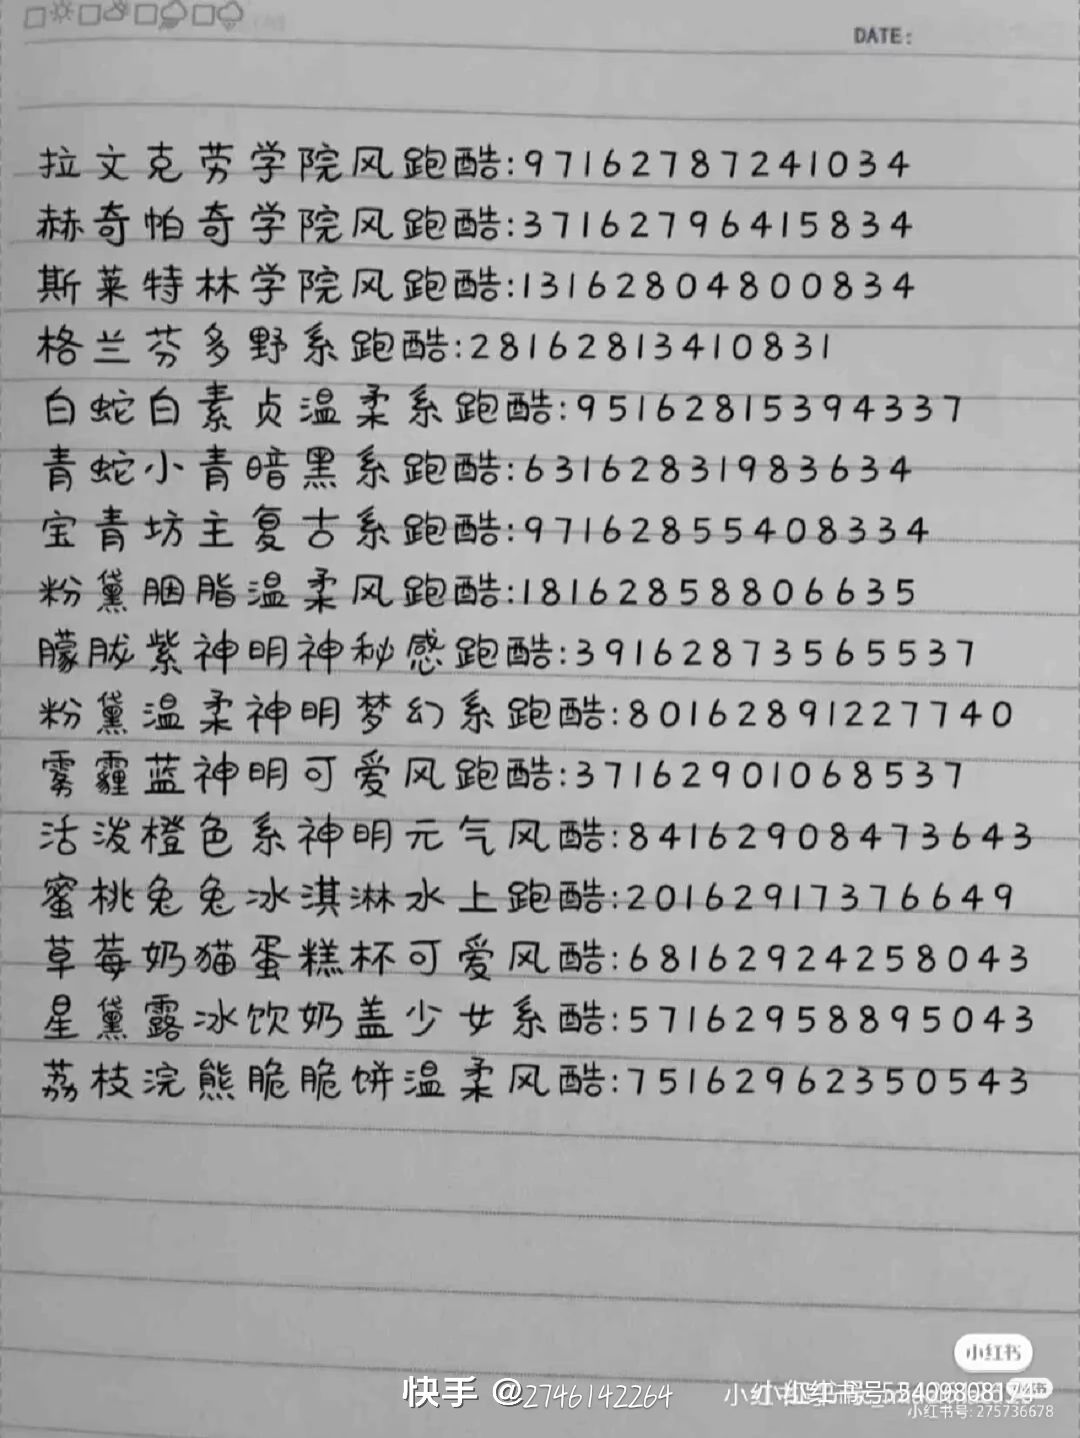 DATE:
拉文克劳学院风跑酷:97162787241034
赫奇帕奇学院风跑酷:37162796415834
斯莱特林学院风跑酷:13162804800834
格兰芬多野系跑酷:28162813410831
白蛇白素贞温柔系跑酷:95162815394337
青蛇小青暗黑系跑酷:63162831983634
宝青坊主复古系跑酷:97162855408334
粉黛胭脂温柔风跑酷:18162858806635
朦胧紫神明神秘感跑酷:39162873565537
粉黛温柔神明梦幻系跑酷:80162891227740
雾霾蓝神明可爱风跑酷:37162901068537
活泼橙色系神明元气风酷:84162908473643
蜜桃兔兔冰淇淋水上跑酷:20162917376649
草莓奶猫蛋糕杯可爱风酷:68162924258043
星黛露冰饮奶盖少女系酷:57162958895043
荔枝浣熊脆脆饼温柔风酷:75162962350543
小红书
快手 @2746142264
小红书号: 275736678